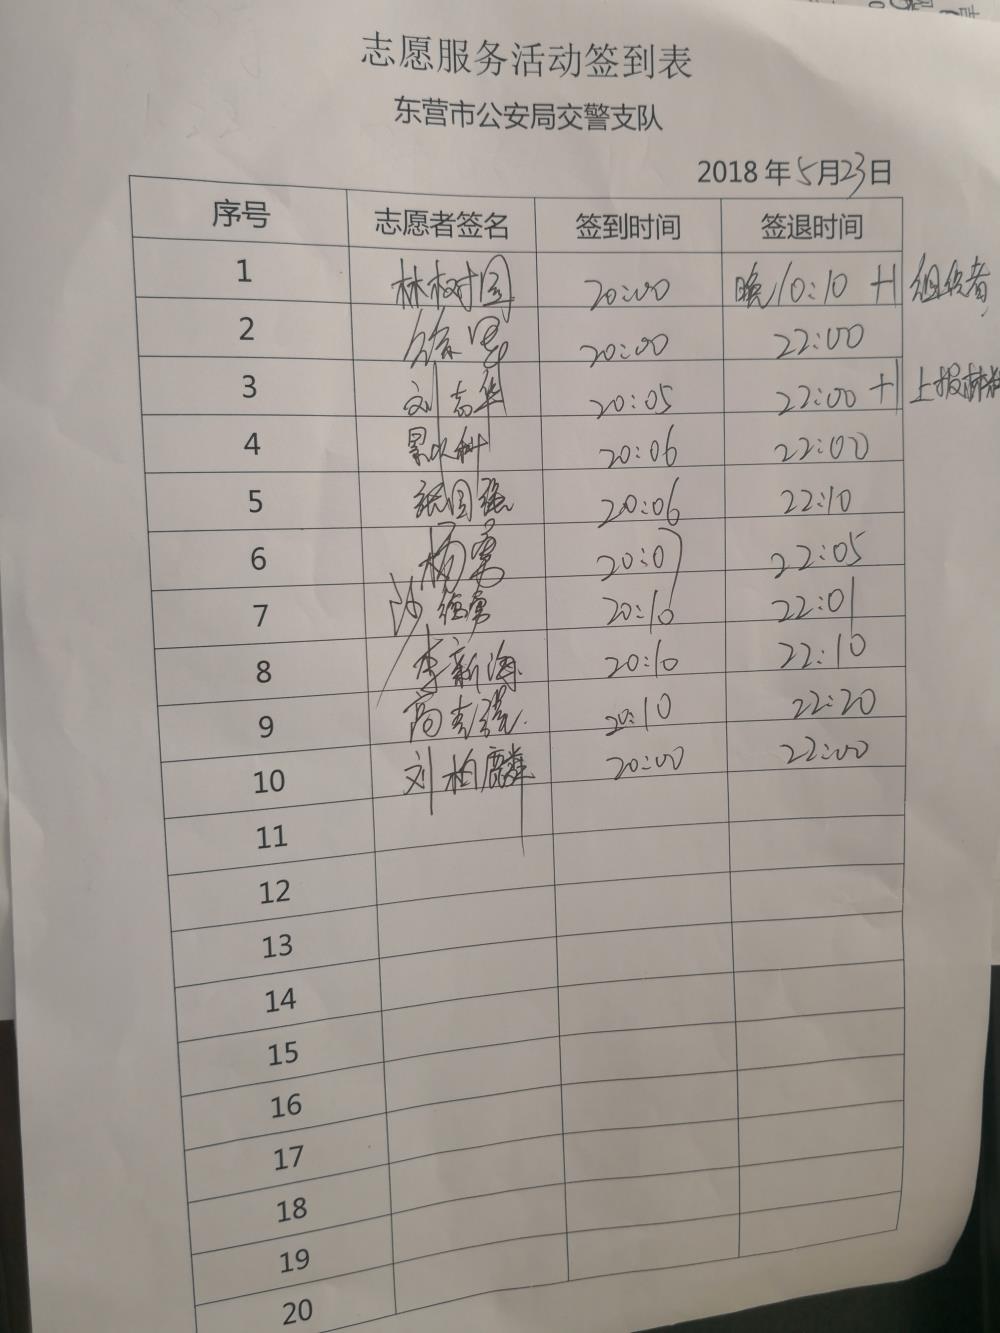 志愿服务活动签到表
东营市公安局交警支队
2018年5月23日
序号 志愿者签名 签到时间 签退时间
1 林树国 20:00 晚10:10 +1 组织者
2 20:00 22:00
3 刘志华 20:05 22:00 +1 上报
4 20:06 22:00
5 张国强 20:06 22:10
6 杨勇 20:07 22:05
7 沙德勇 20:10 22:01
8 李新海 20:10 22:10
9 高志强 20:10 22:20
10 刘柏麟 20:00 22:00
11
12
13
14
15
16
17
18
19
20